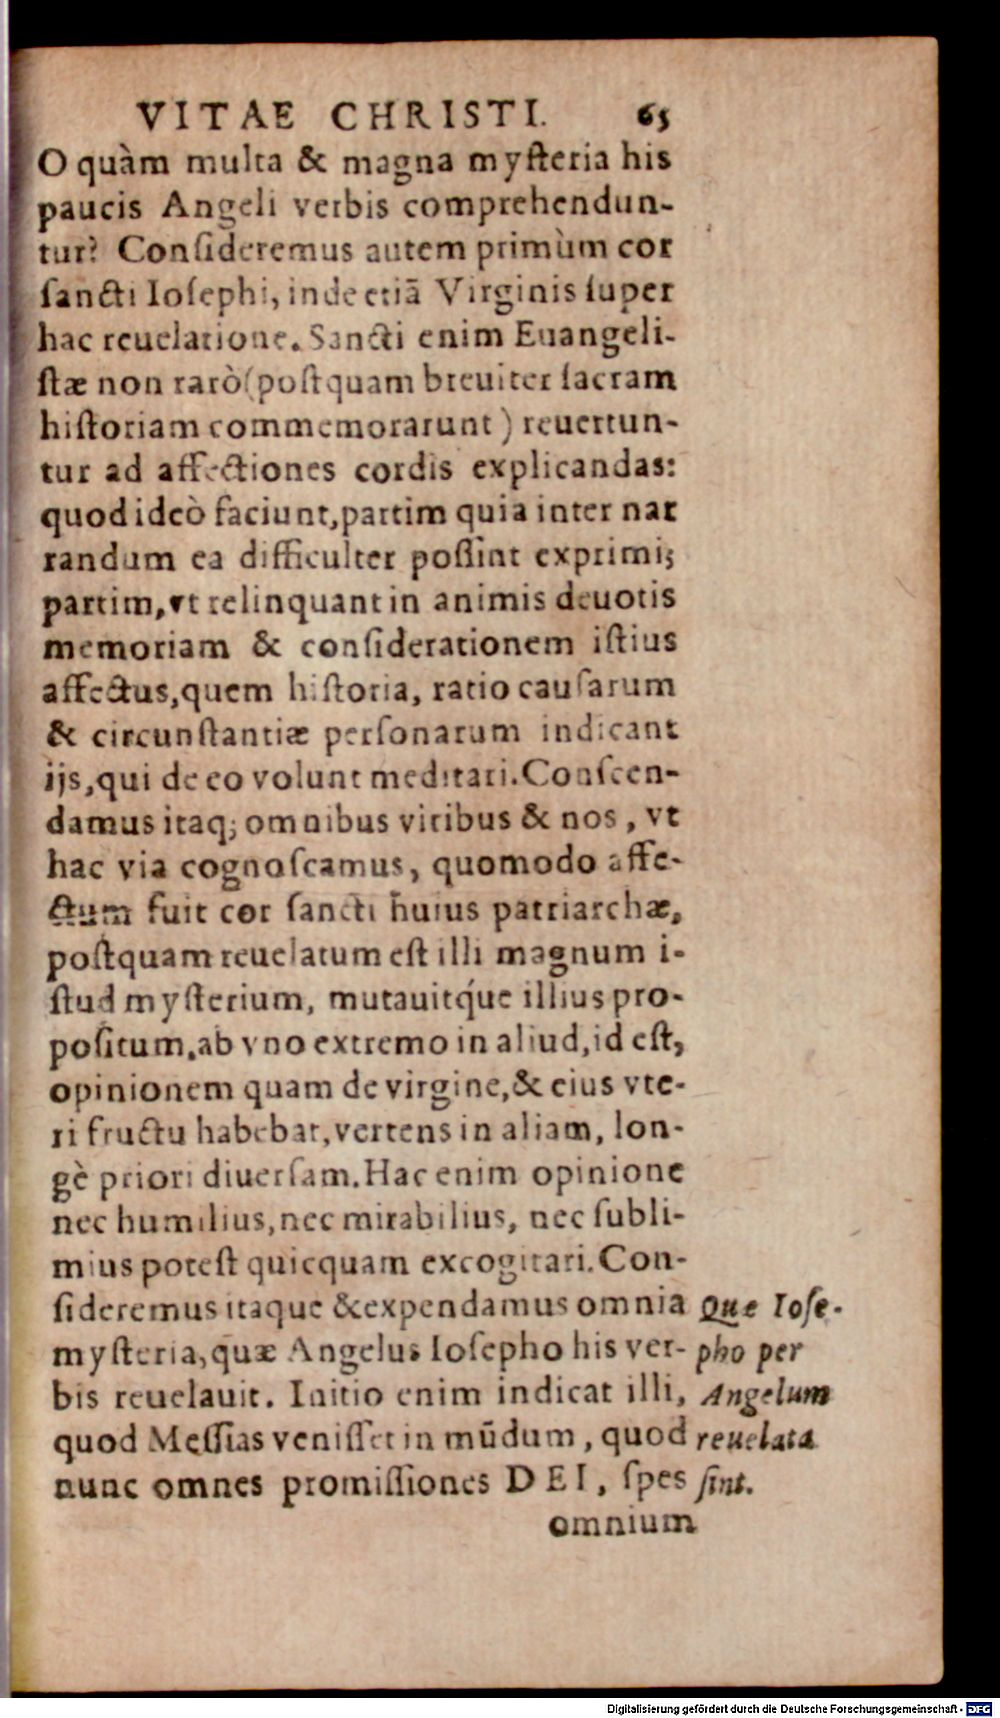 VITAE CHRISTI. 65
O quàm multa & magna myſteria his
paucis Angeli verbis comprehendun-
tur? Conſideremus autem primùm cor
ſancti Ioſephi, inde etiã Virginis ſuper
hac reuelatione. Sancti enim Euangeli-
ſtæ non rarò (poſtquam breuiter ſacram
hiſtoriam commemorarunt) reuertun-
tur ad affectiones cordis explicandas:
quod ideò faciunt, partim quia inter nar
randum ea difficulter poſſint exprimi;
partim, vt relinquant in animis deuotis
memoriam & conſiderationem iſtius
affectus, quem hiſtoria, ratio cauſarum
& circunſtantiæ perſonarum indicant
ijs, qui de eo volunt meditari. Conſcen-
damus itaq; omnibus viribus & nos, vt
hac via cognoſcamus, quomodo affe-
ctum fuit cor ſancti huius patriarchæ,
poſtquam reuelatum eſt illi magnum i-
ſtud myſterium, mutauitq́ue illius pro-
poſitum, ab vno extremo in aliud, id eſt,
opinionem quam de virgine, & eius vte-
ri fructu habebat, vertens in aliam, lon-
gè priori diuerſam. Hac enim opinione
nec humilius, nec mirabilius, nec ſubli-
mius poteſt quicquam excogitari. Con-
ſideremus itaque & expendamus omnia
myſteria, quæ Angelus Ioſepho his ver-
bis reuelauit. Initio enim indicat illi,
quod Meſſias veniſſet in mũdum, quod
nunc omnes promiſſiones DEI, ſpes
omnium
Quæ Ioſe-
pho per
Angelum
reuelata
ſint.
Digitalisierung gefördert durch die Deutsche Forschungsgemeinschaft - DFG